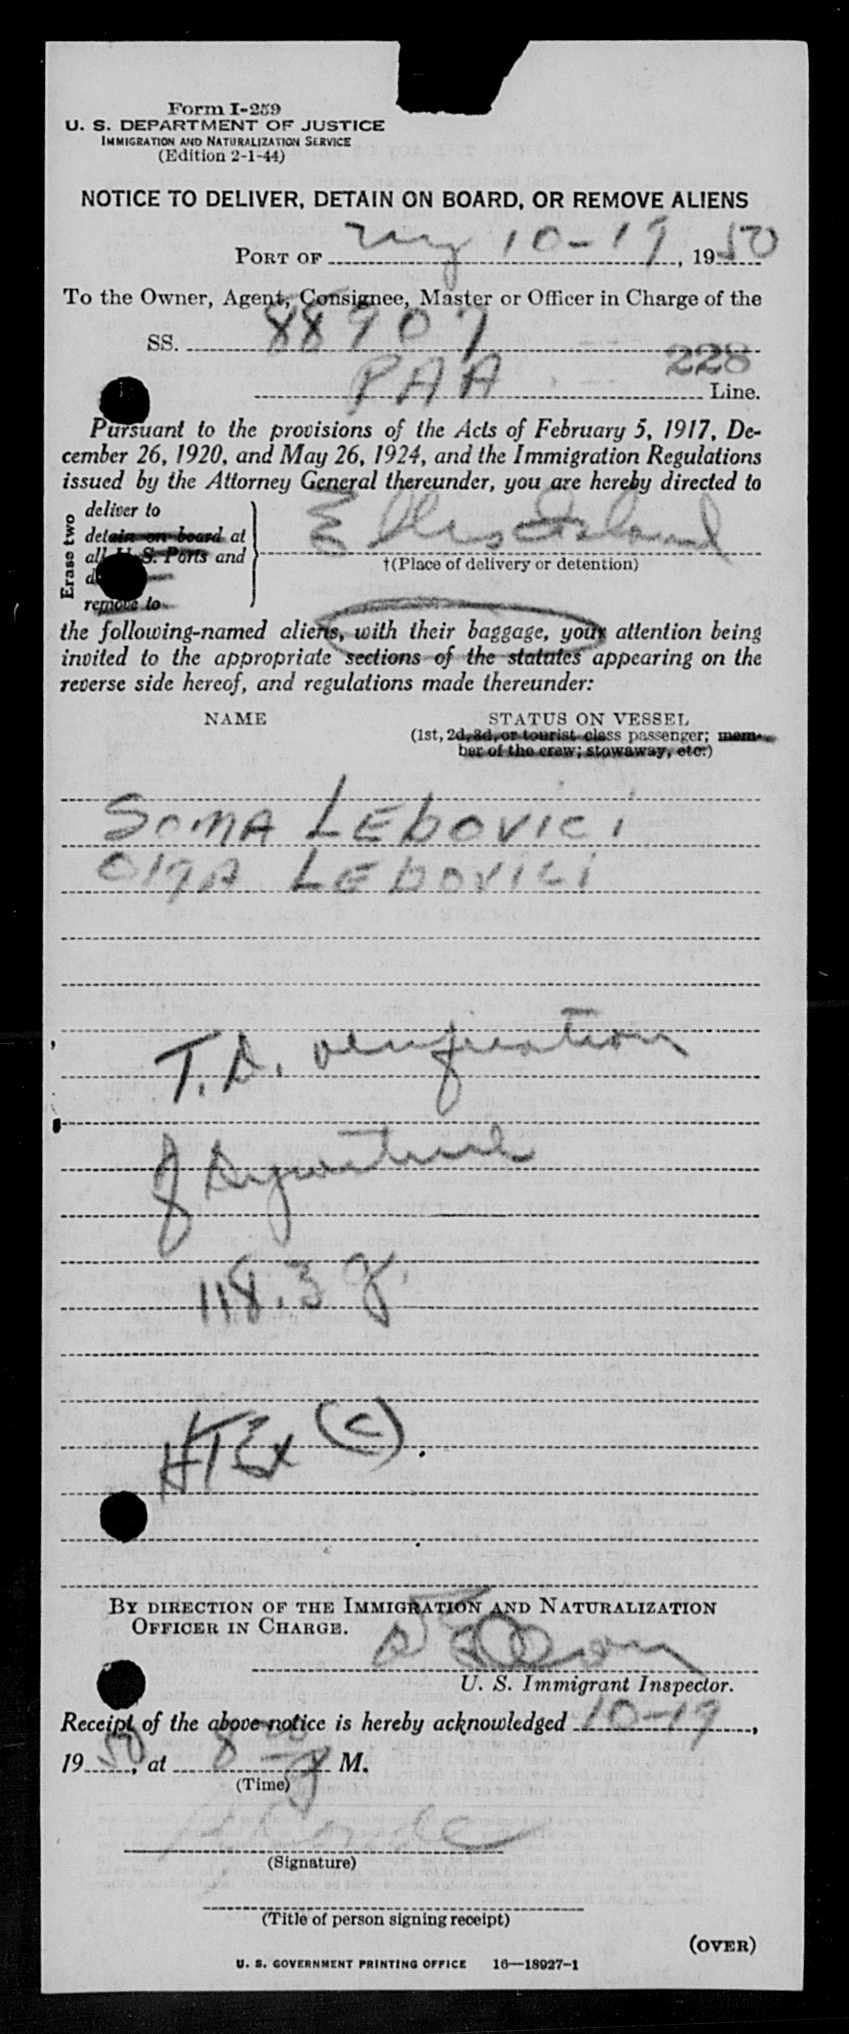 Form I-259
U. S. DEPARTMENT OF JUSTICE
IMMIGRATION AND NATURALIZATION SERVICE
(Edition 2-1-44)
NOTICE TO DELIVER, DETAIN ON BOARD, OR REMOVE ALIENS
PORT OF ny 10-19, 1950
To the Owner, Agent, Consignee, Master or Officer in Charge of the
SS. 88907
228
PAA Line.
Pursuant to the provisions of the Acts of February 5, 1917, De-
cember 26, 1920, and May 26, 1924, and the Immigration Regulations
issued by the Attorney General thereunder, you are hereby directed to
Erase two
deliver to
detain on board at
all U. S. Ports and
remove to
Ellis Island
†(Place of delivery or detention)
the following-named aliens, with their baggage, your attention being
invited to the appropriate sections of the statutes appearing on the
reverse side hereof, and regulations made thereunder:
NAME STATUS ON VESSEL
(1st, 2d, 3d, or tourist class passenger; mem-
ber of the crew; stowaway, etc.)
SOMA LEBOVICI
OlgA LEBOVICI
T. D. verification
of Signature
118.3
(c).
BY DIRECTION OF THE IMMIGRATION AND NATURALIZATION
OFFICER IN CHARGE.
U. S. Immigrant Inspector.
Receipt of the above notice is hereby acknowledged 10-19,
1950, at 8 M.
(Time)
(Signature)
(Title of person signing receipt)
(OVER)
U. S. GOVERNMENT PRINTING OFFICE 16—18927-1